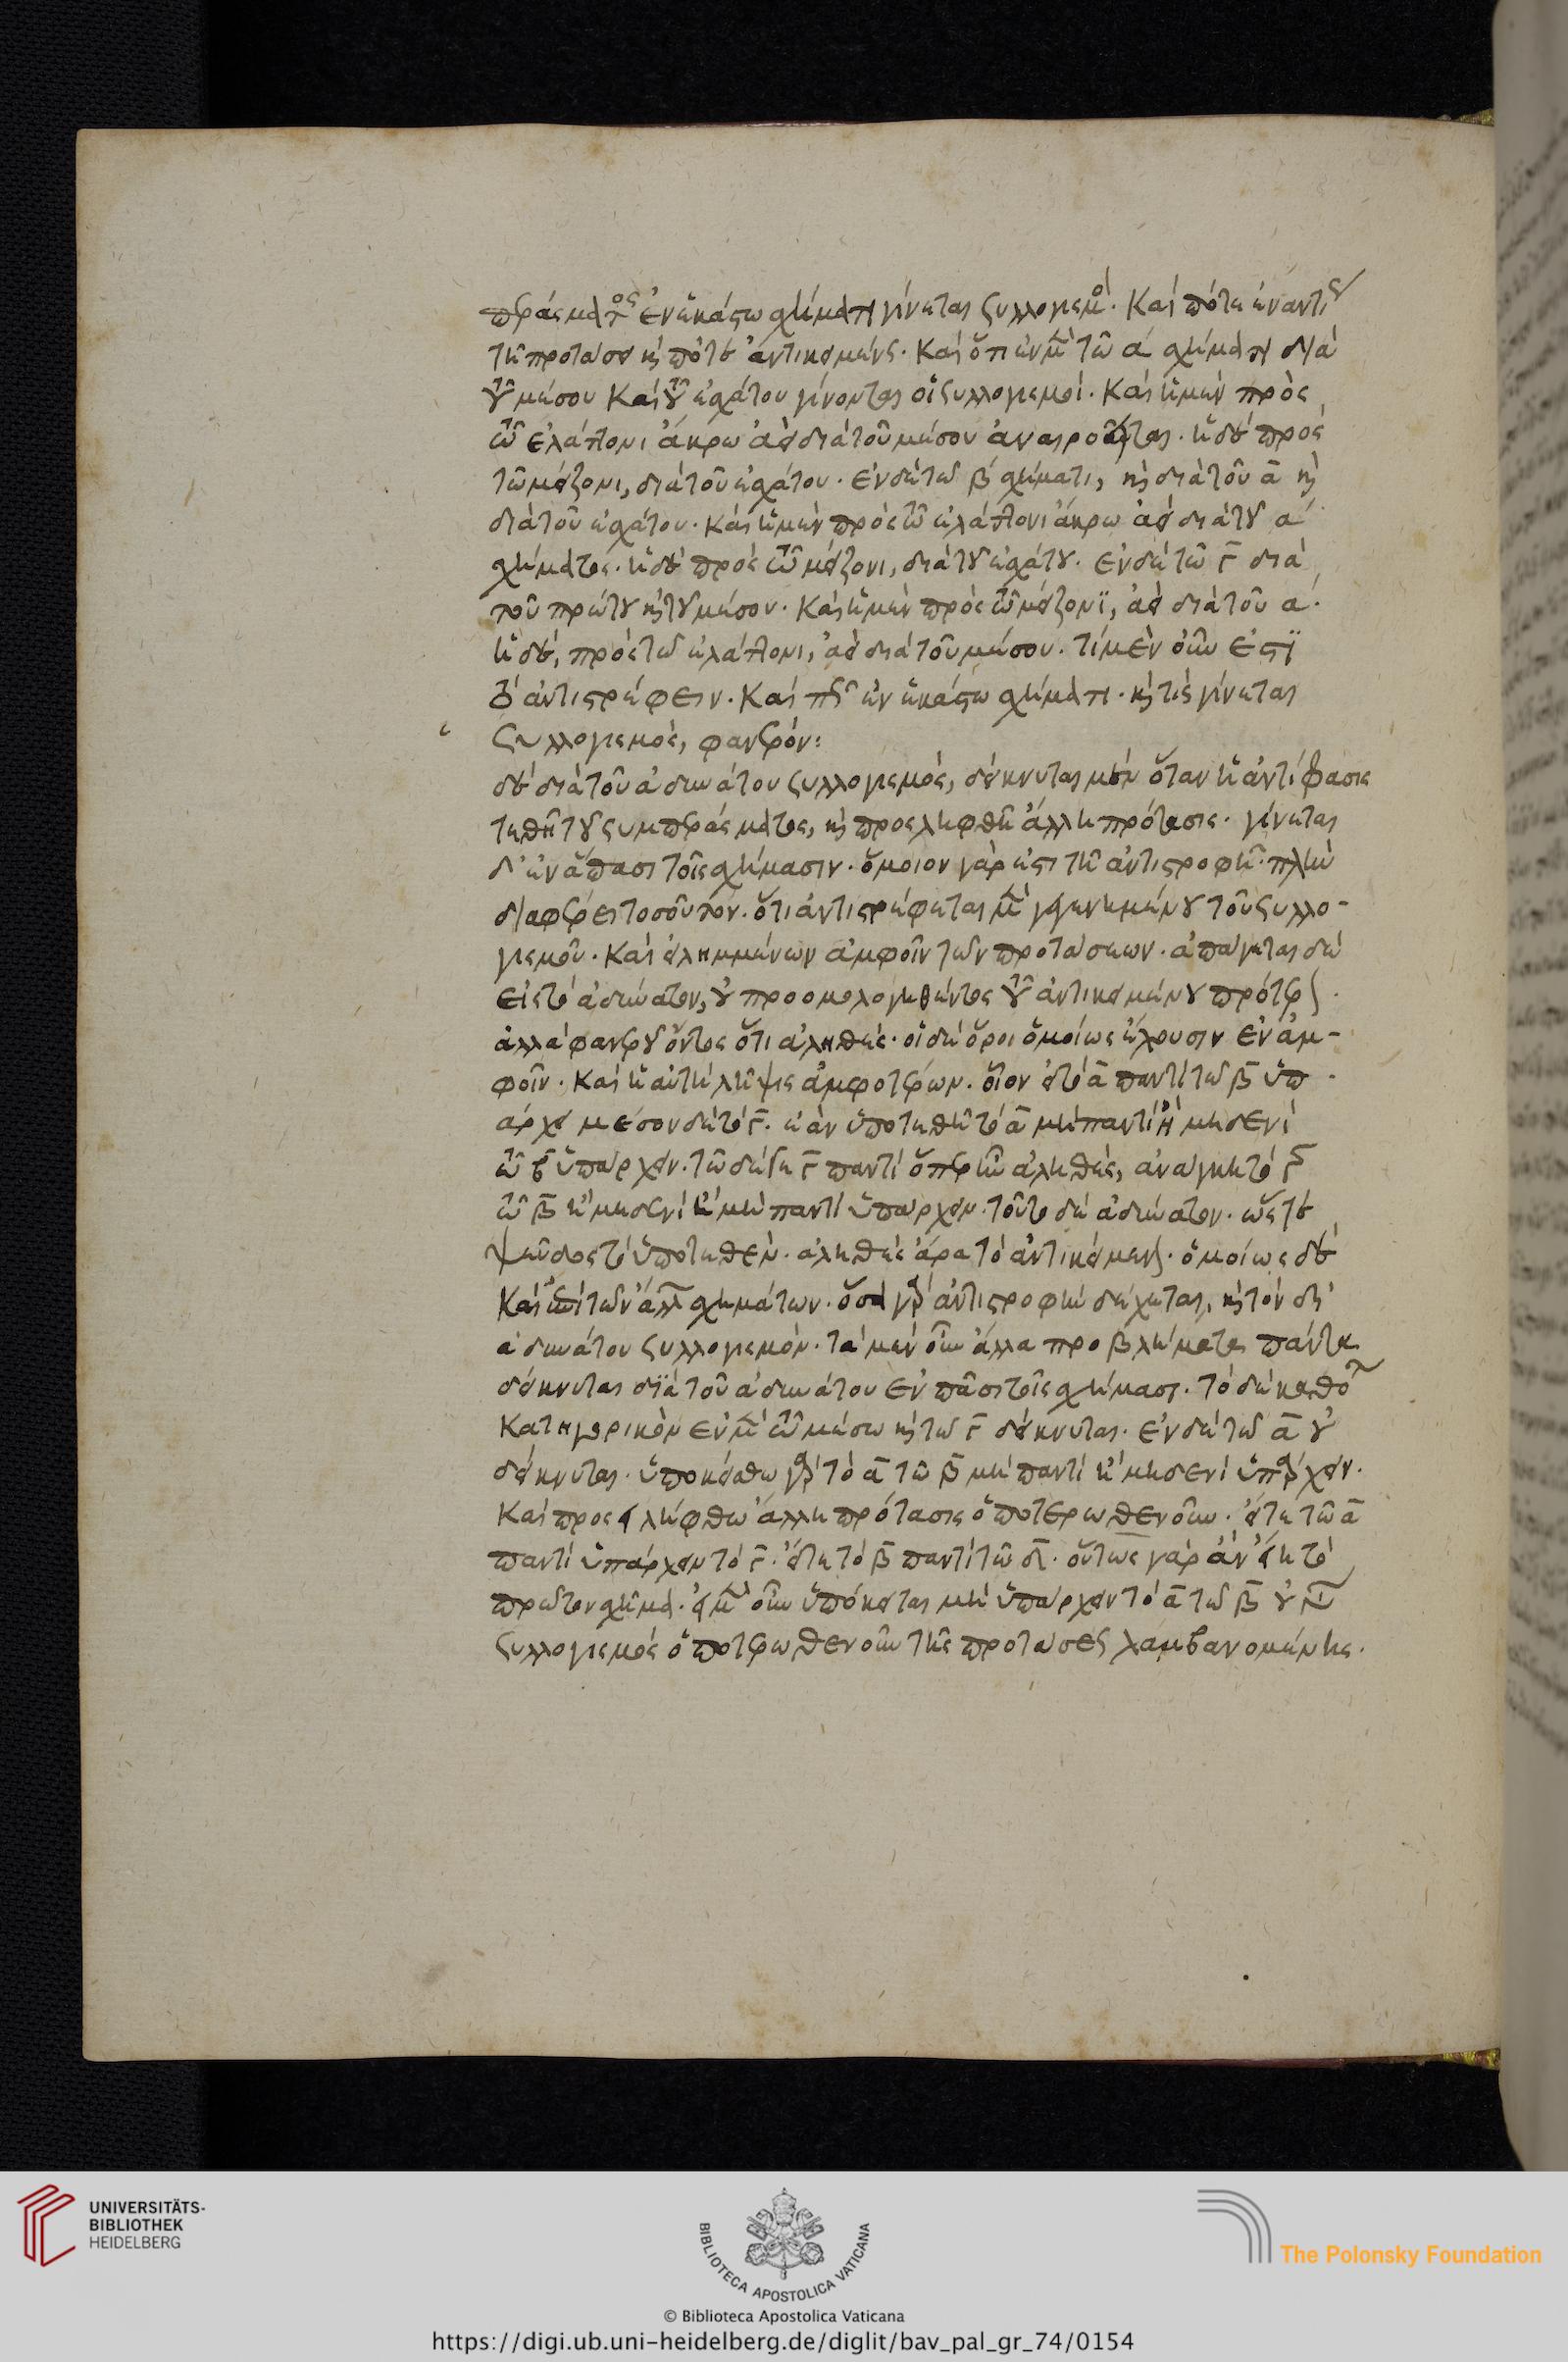 περάσματος ἐν ἑκάστω σχήματι γίνεται συλλογισμοί. καὶ πότε ἐναντίας
τῆ προτάσει καὶ πότε ἀντικειμένης. καὶ ὅτι ἐν μὲν τῶ α σχήματι διὰ
τοῦ μέσου καὶ τοῦ ἐσχάτου γίνονται οἱ συλλογισμοί. καὶ ἡ μὲν πρὸς
τῶ ἐλάττονι ἄκρω ἀεὶ διὰ τοῦ μέσου ἀναιρεῖται. ἡ δὲ πρὸς
τῶ μείζονι, διὰ τοῦ ἐσχάτου. ἐν δὲ τῶ β σχήματι, καὶ διὰ τοῦ α καὶ
διὰ τοῦ ἐσχάτου. καὶ ἡ μὲν πρὸς τῶ ἐλάττονι ἄκρω ἀεὶ διὰ τοῦ α
σχήματος. ἡ δὲ πρὸς τῶ μείζονι, διὰ τοῦ ἐσχάτου. ἐν δὲ τῶ Γ διὰ
τοῦ πρώτου καὶ τοῦ μέσου. καὶ ἡ μὲν πρὸς τῶ μείζονϊ, ἀεὶ διὰ τοῦ α.
ἡ δὲ, πρὸς τῶ ἐλάττονι, ἀεὶ διὰ τοῦ μέσου. τί μὲν οὖν ἐστϊ
τὸ ἀντιστρέφειν. καὶ πῶς ἐν ἑκάστω σχήματι. καὶ τίς γίνεται
συλλογισμὸς, φανερόν:
δὲ διὰ τοῦ ἀδυνάτου συλλογισμὸς, δείκνυται μὲν ὅταν ἡ ἀντίφασις
τεθῆ τοῦ συμπεράσματος, καὶ προσληφθῆ ἄλλη πρότασις. γίνεται
δ' ἐν ἅπασι τοῖς σχήμασιν. ὅμοιον γάρ ἐστι τῆ ἀντιστροφῆ. πλὴν
διαφέρει τοσοῦτον. ὅτι ἀντιστρέφεται μὲν γεγενημένου τοῦ συλλο-
γισμοῦ. καὶ εἰλημμένων ἀμφοῖν τῶν προτάσεων. ἀπάγεται δὲ
εἰς τὸ ἀδύνατον, οὐ προομολογηθέντος τοῦ ἀντικειμένου πρότερον.
ἀλλὰ φανεροῦ ὄντος ὅτι ἀληθές. οἱ δὲ ὅροι ὁμοίως ἔχουσιν ἐν ἀμ-
φοῖν. καὶ ἡ αὐτὴ λῆψις ἀμφοτέρων. οἷον εἰ τὸ α παντὶ τῶ β ὑπ
άρχει μέσον δὲ τὸ Γ. ἐὰν ὑποτεθῆ τὸ α μὴ παντὶ ἢ μηδενὶ
τῶ β ὑπάρχειν. τῶ δέ γε Γ παντὶ ὅπερ ἦν ἀληθὲς, ἀνάγκη τὸ Γ
τῶ β ἢ μηδενὶ ἢ μὴ παντὶ ὑπάρχειν. τοῦτο δὲ ἀδύνατον. ὥστε
ψεῦδος τὸ ὑποτεθέν. ἀληθὲς ἄρα τὸ ἀντικείμενον. ὁμοίως δὲ
καὶ ἐπὶ τῶν ἄλλων σχημάτων. ὅσα γὰρ ἀντιστροφὴν δέχεται, καὶ τὸν δι'
ἀδυνάτου συλλογισμόν. τὰ μὲν οὖν ἄλλα προβλήματα πάντα
δείκνυται δϊὰ τοῦ ἀδυνάτου ἐν πᾶσι τοῖς σχήμασι. τὸ δὲ καθόλου
κατηγορικὸν ἐν μὲν τῶ μέσω καὶ τῶ Γ δείκνυται. ἐν δὲ τῶ α οὐ
δείκνυται. ὑποκείσθω γὰρ τὸ α τῶ β μὴ παντὶ ἢ μηδενὶ ὑπάρχειν.
καὶ προσειλήφθω ἄλλη πρότασις ὁποτερωθενοῦν. εἴτε τῶ α
παντὶ ὑπάρχειν τὸ Γ. εἴτε τὸ β παντὶ τῶ δ. οὕτως γὰρ ἂν εἴη τὸ
πρῶτον σχῆμα. εἰ μὲν οὖν ὑπόκειται μὴ ὑπάρχειν τὸ α τῶ β οὐ γίνεται
συλλογισμὸς ὁποτερωθενοῦν τῆς προτάσεως λαμβανομένης.
UNIVERSITÄTS-
BIBLIOTHEK
HEIDELBERG
BIBLIOTECA APOSTOLICA VATICANA
The Polonsky Foundation
© Biblioteca Apostolica Vaticana
https://digi.ub.uni-heidelberg.de/diglit/bav_pal_gr_74/0154